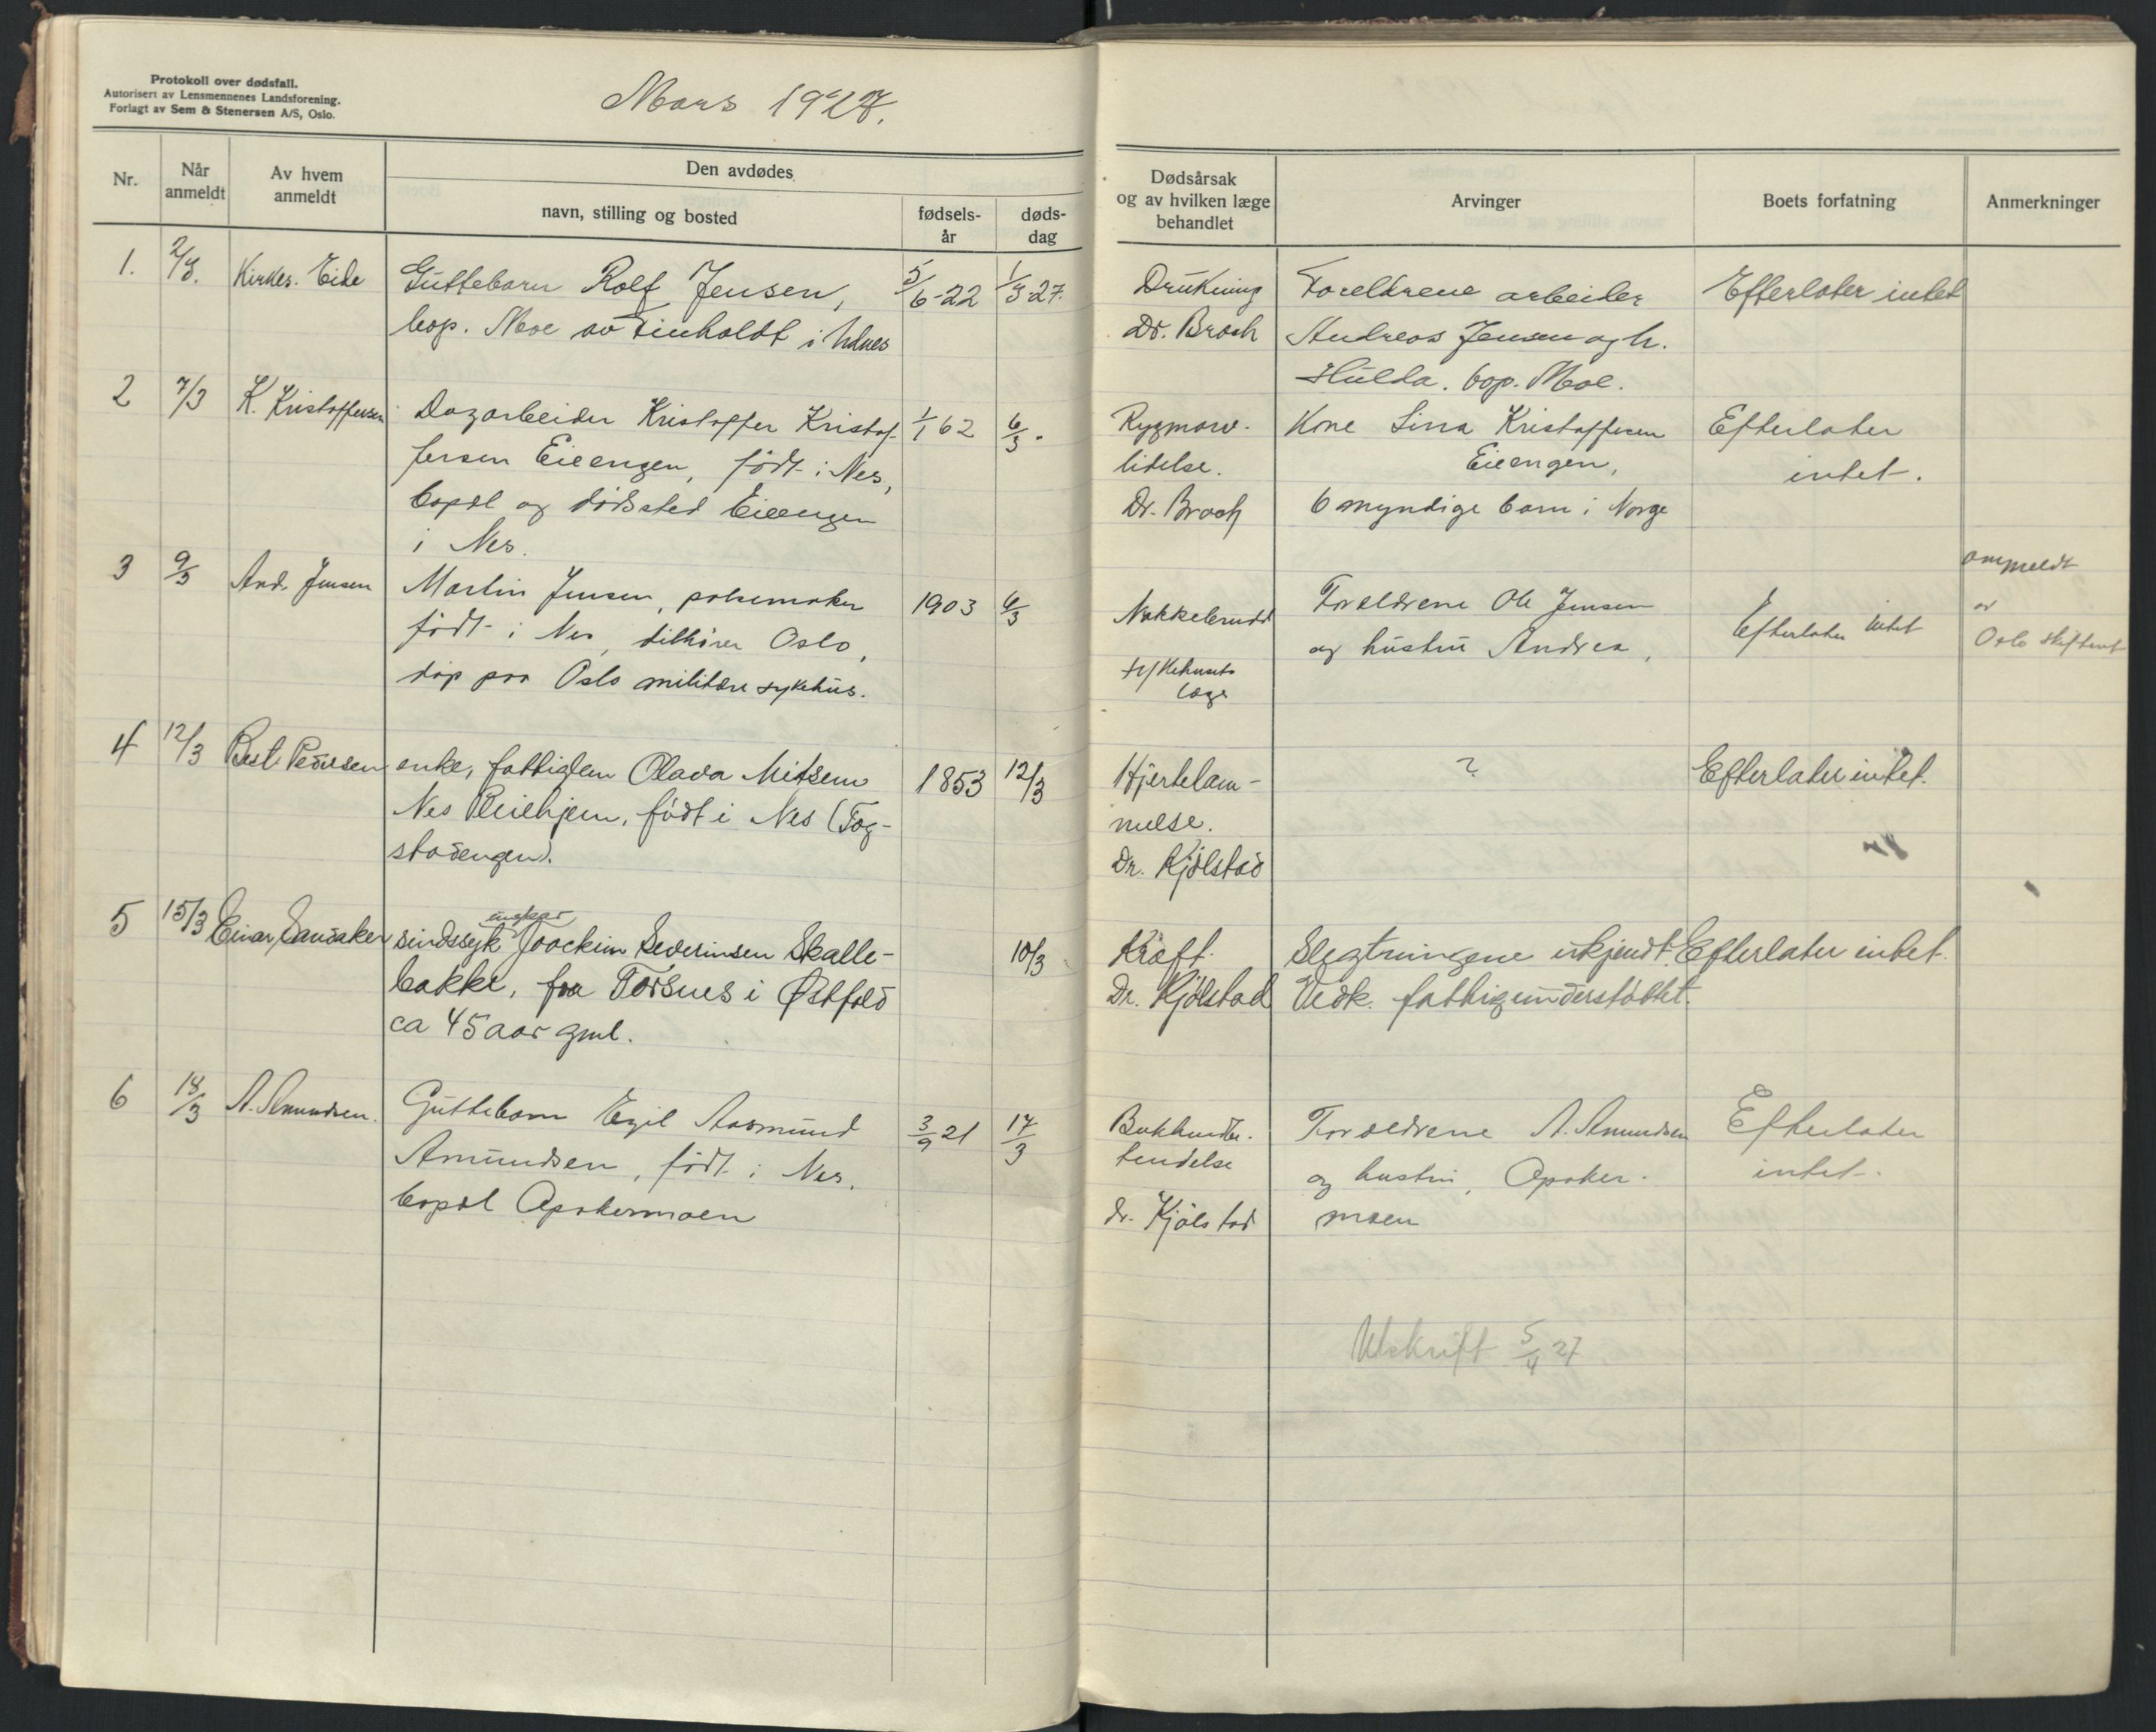 Protokoll over dødsfall.
Autorisert av Lensmennenes Landsforening.
Forlagt av Sem & Stenersen A/S, Oslo.
Mars 1927.
Nr.
Når anmeldt
Av hvem anmeldt
Den avdødes
navn, stilling og bosted
fødsels-år
døds-dag
Dødsårsak og av hvilken læge behandlet
Arvinger
Boets forfatning
Anmerkninger
1. 2/3. Kirkes. Eide Guttebarn Rolf Jensen, 5/6-22 1/3-27. Drukning Foreldrene arbeider Efterlater intet
bop. Moe av i Udnes Dr. Broch Andreas Jensen og h.
Hulda. bop. Moe.
2 7/3 K. Kristoffersen Dagarbeider Kristoffer Kristof- 1/1 62 6/3. Rygmarv- Kone Lina Kristoffersen Efterlater
fersen Eieengen, født i Nes, lidelse. Eieengen, intet.
bopæl og dødssted Eieengen Dr. Broch 6 myndige barn i Norge
i Nes.
3 9/3 And. Jensen Martin Jensen, pølsemaker 1903 6/3 Nakkebrudd Foreldrene Ole Jensen Efterlater intet anmeldt
født i Nes, tilhører Oslo, og hustru Andrea, av
død paa Oslo militære sykehus. sykehusets læge Oslo skifterett
4 12/3 Best. Pedersen enke, fattiglem Olava Mitsem 1853 12/3 Hjertelam- ? Efterlater intet.
Nes Pleiehjem, født i Nes (Fog- melse.
stadengen). Dr. Kjølstad
5 15/3 Einar Sandaker sindssyk ungkar Joackim Severinsen Skalle- 10/3 Kræft. Slegtningene ukjendt. Efterlater intet.
bakke, fra Torsnes i Østfold Dr. Kjølstad Vedk. fattigunderstøttet.
ca 45 aar gml.
6 18/3 A. Amundsen. Guttebarn Egil Aasmund 3/9 21 17/3 Bukhindbe- Foreldrene A. Amundsen Efterlater
Amundsen, født i Nes. tendelse og hustru, Opaker- intet.
bopæl Opakermoen dr. Kjølstad moen
Utskrift 5/4 27